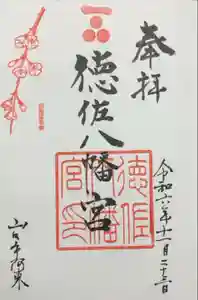 奉拝
徳佐八幡宮
徳佐
八幡
宮印
令和六年十一月二十三日
山口市阿東